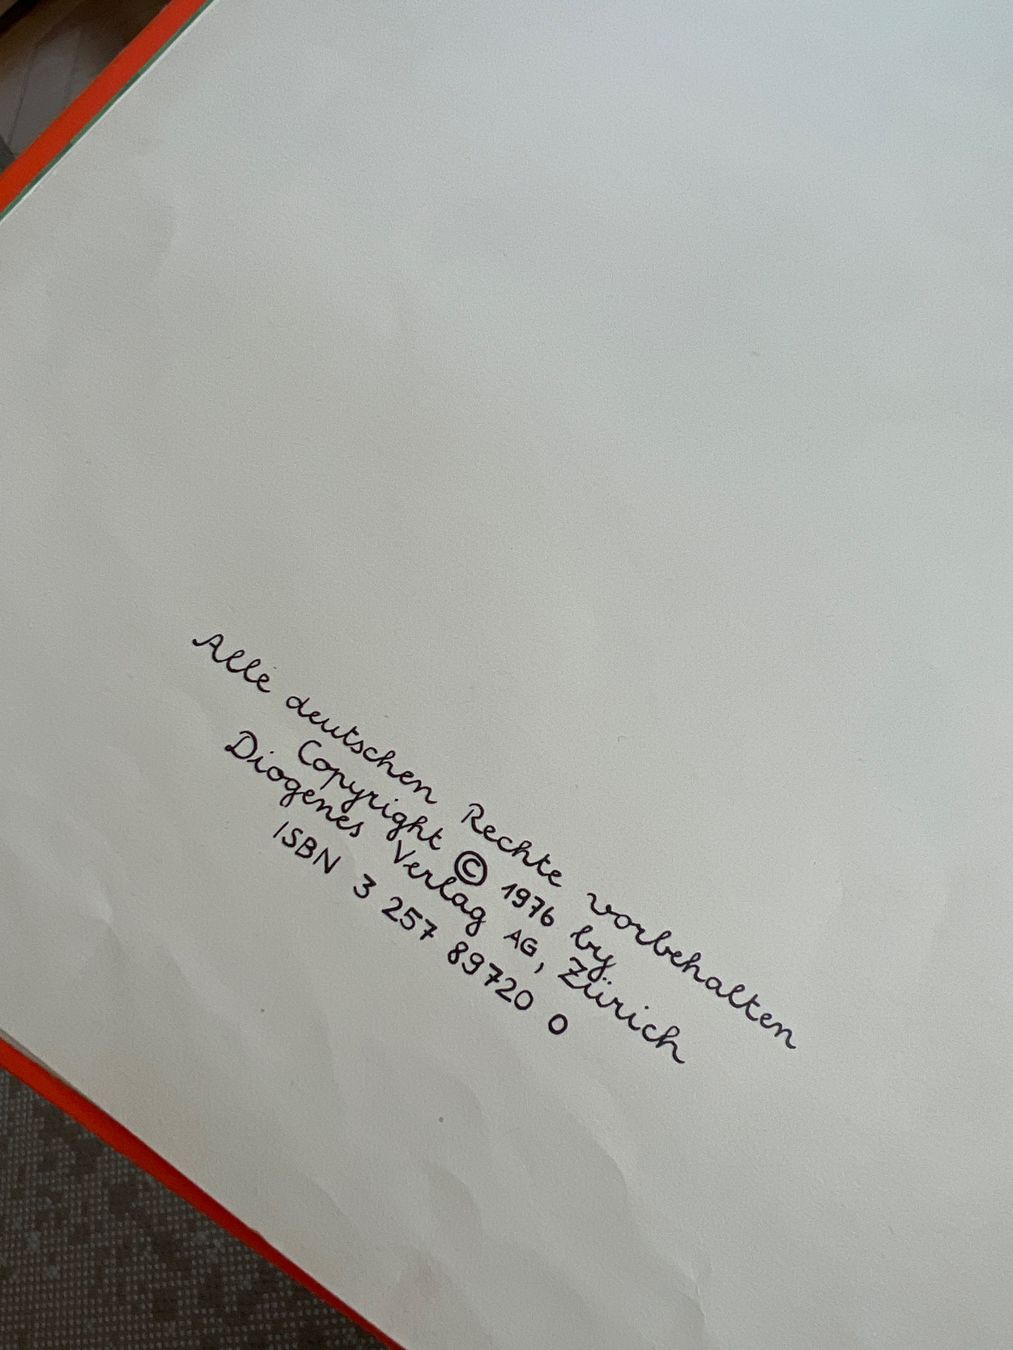 Alle deutschen Rechte vorbehalten
Copyright © 1976 by
Diogenes Verlag AG, Zürich
ISBN 3 257 89720 0